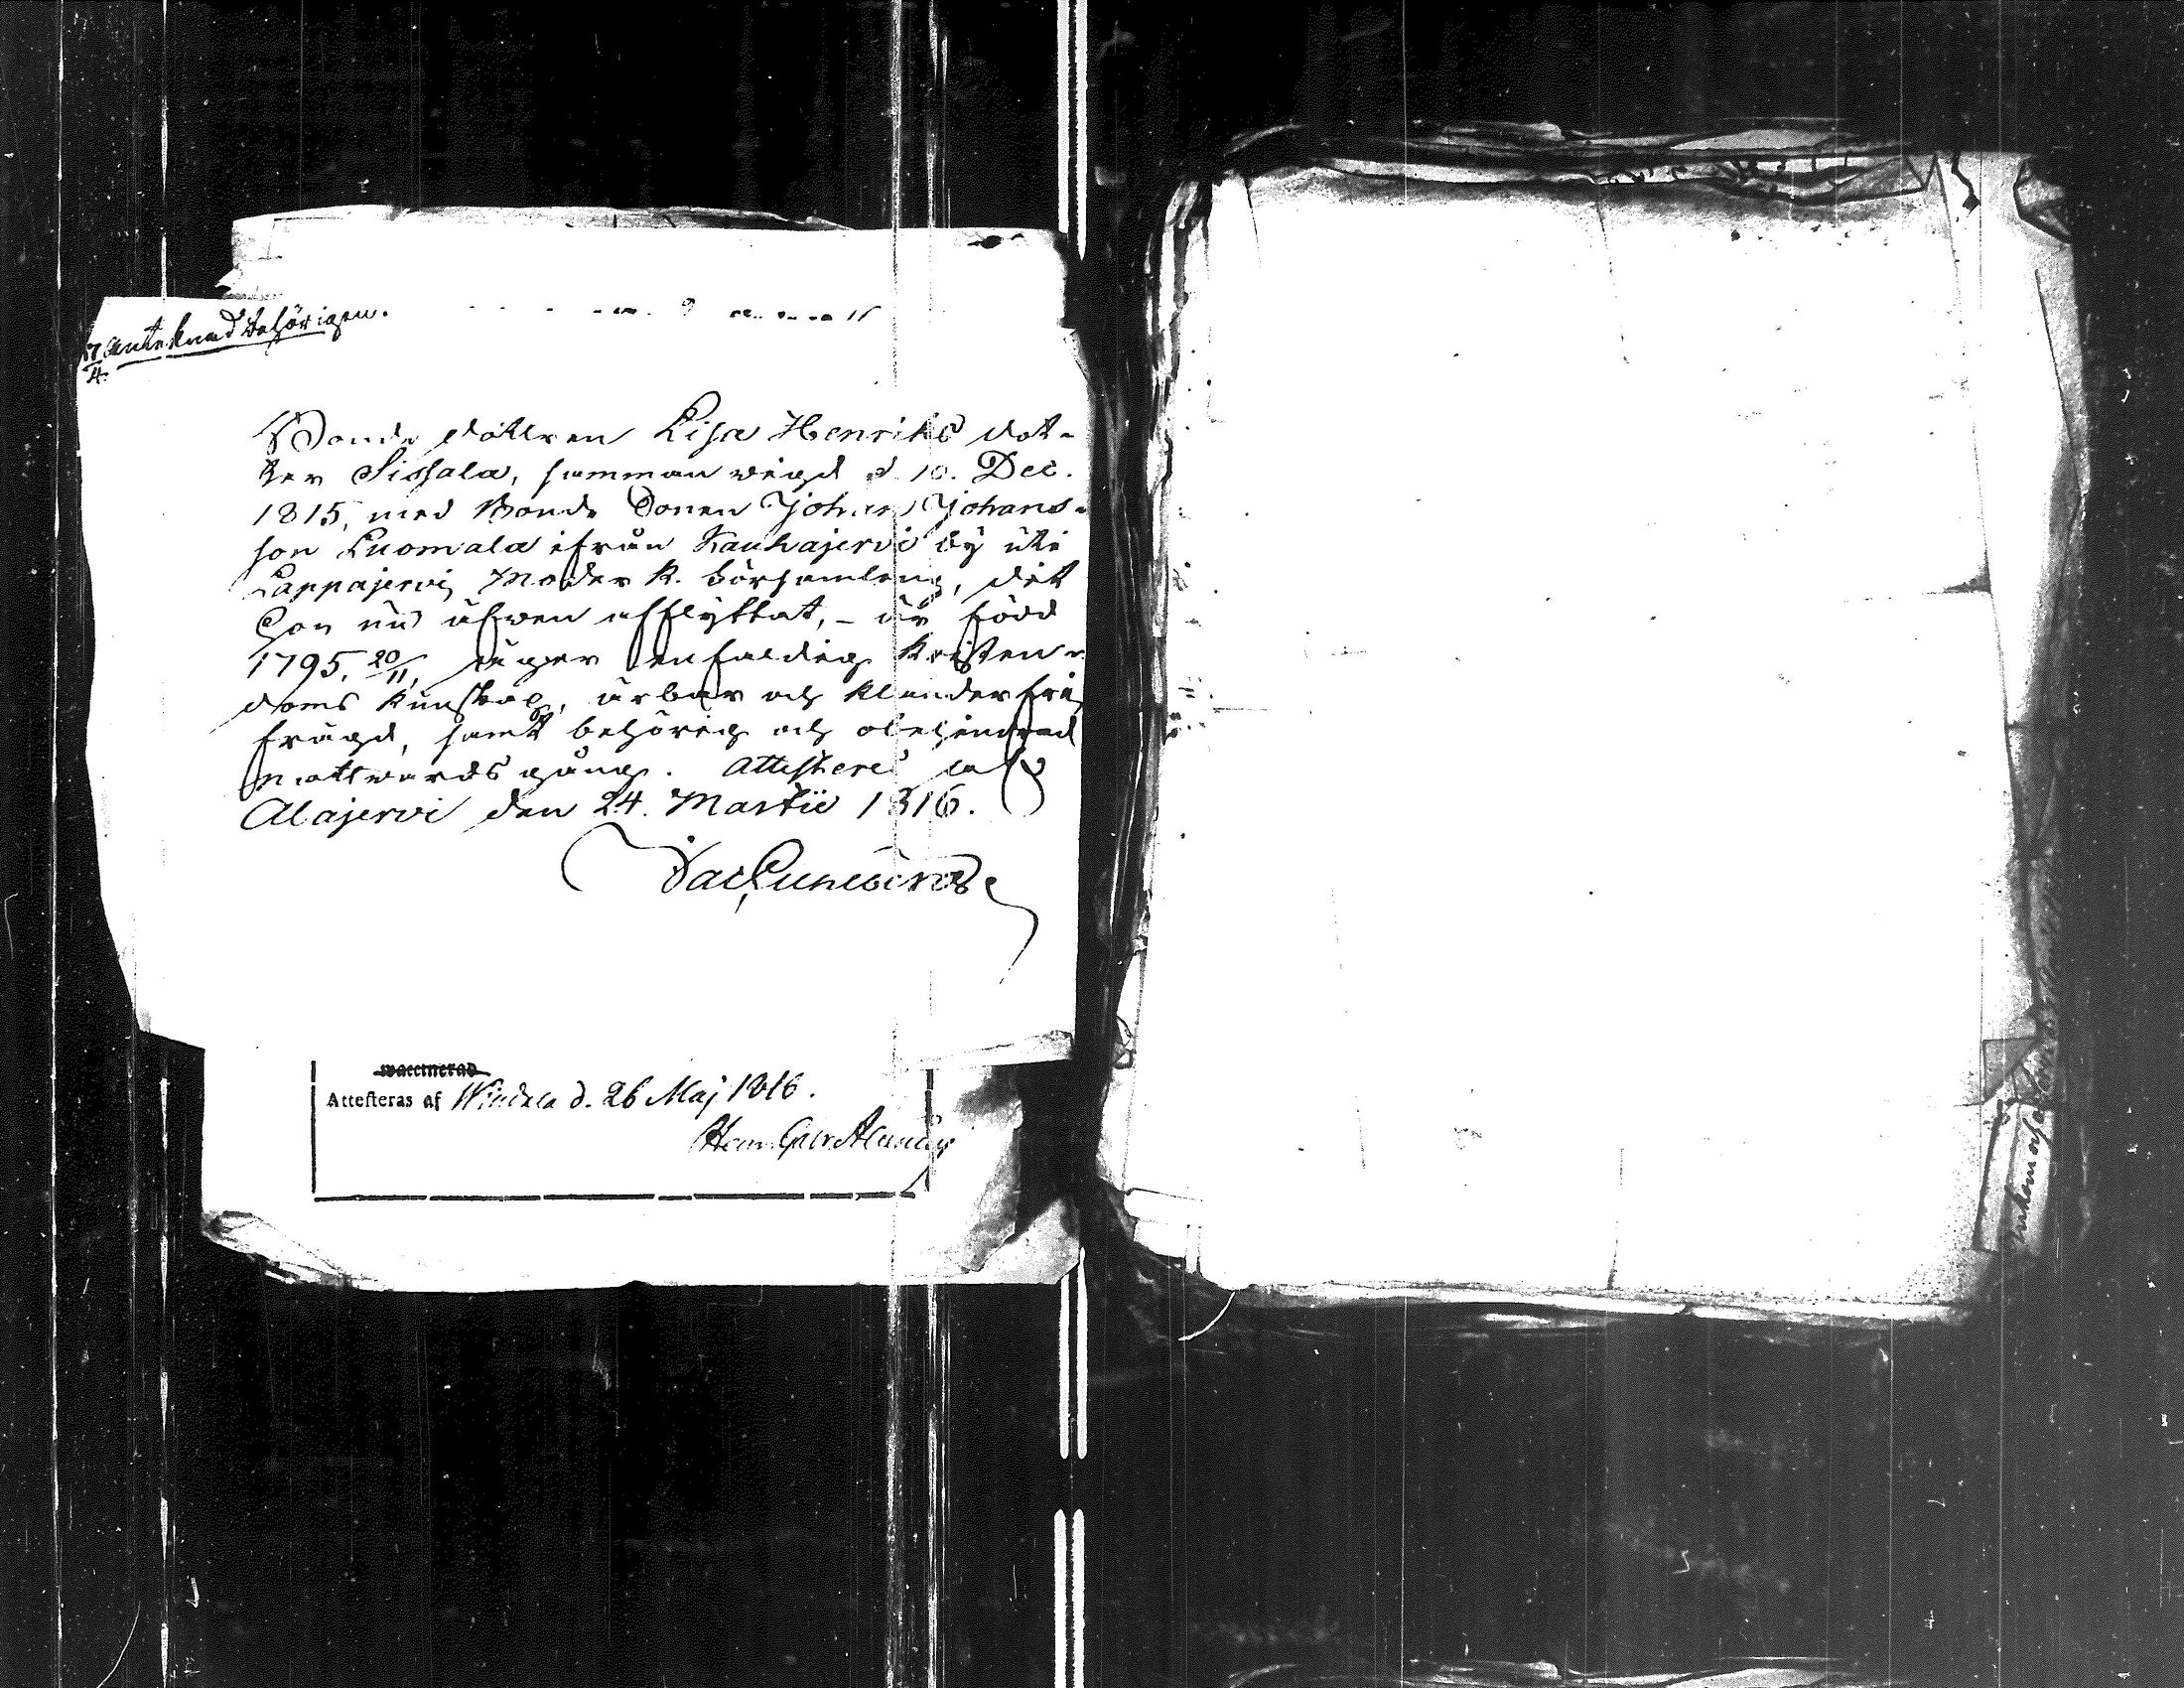 17/4 anteknad behörigen.
Bonde dottren Lisa Henriks dot-
ter Sissala, samman wigd d. 10. Dec.
1815, med Bonde Sonen Johan Johans-
son Luomala ifrån Kauhajervi by uti
Lappajervi Moder K. församling, dit
hon nu äfwen afflyttat, – är född
1795. 20/11, äger enfaldig Kristen-
doms Kunskap, ärbar och klanderfri
frägd, samt behörig och obehindrad
nattwards gång. Attesteres
Alajervi den 24. Martii 1816.
waccinerad
Attesteras af Windala d. 26 Maj 1816.